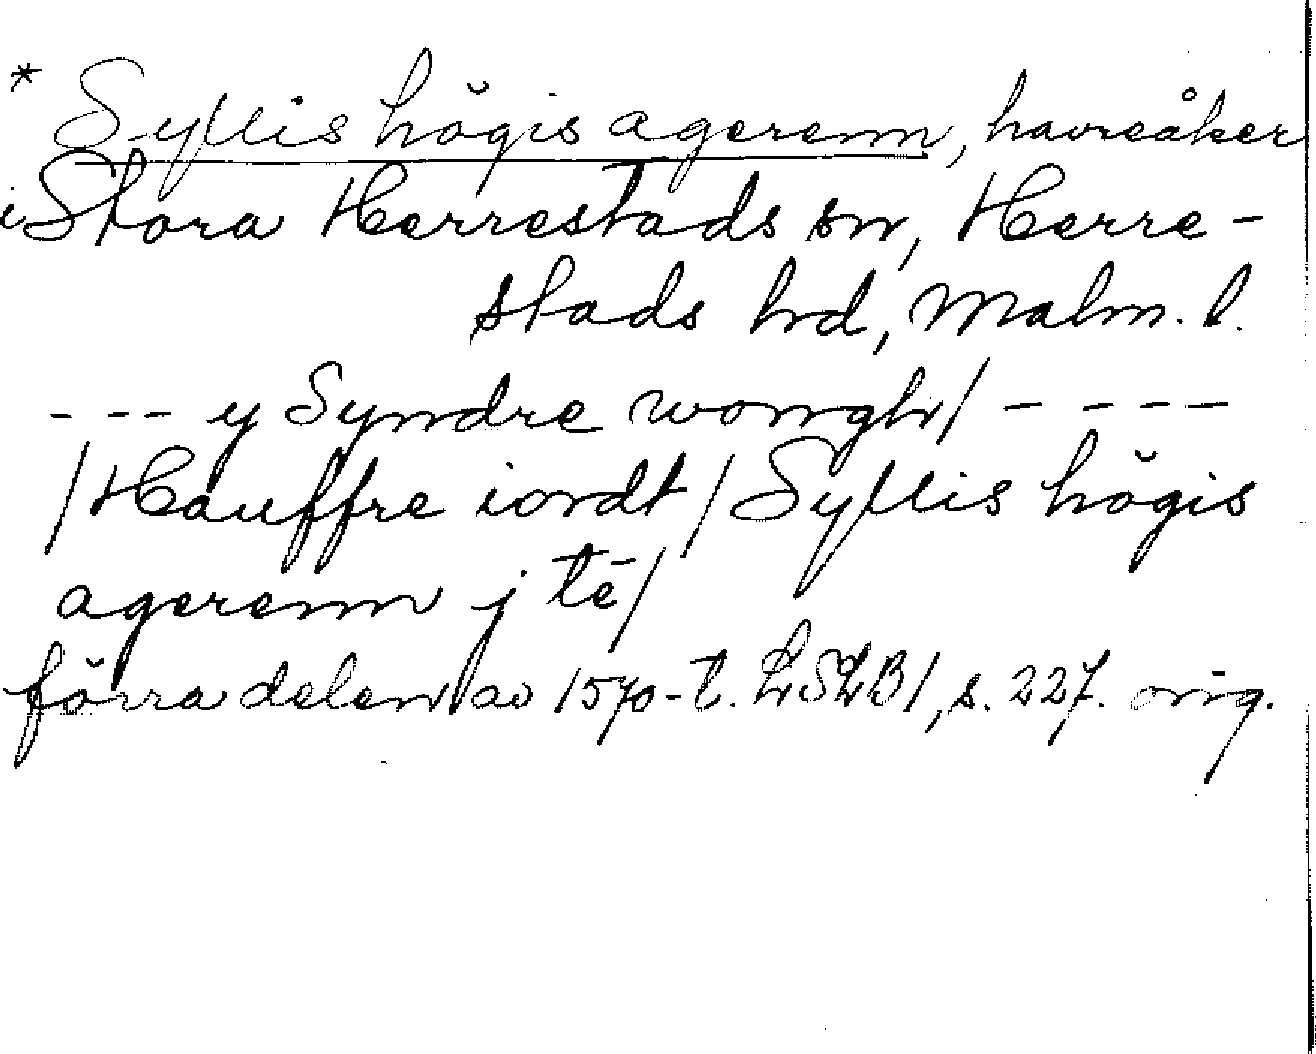 * Syllis hŏgis agerenn, havreåker
i Stora Herrestads sn, Herre-
stads hd, Malm. l.
--- y Syndre wongh/ ----
/Hauffre iordt/ Syllis hŏgis
agerenn j tē/
förra delen av 1570-t. LSLB1, s. 227. orig.